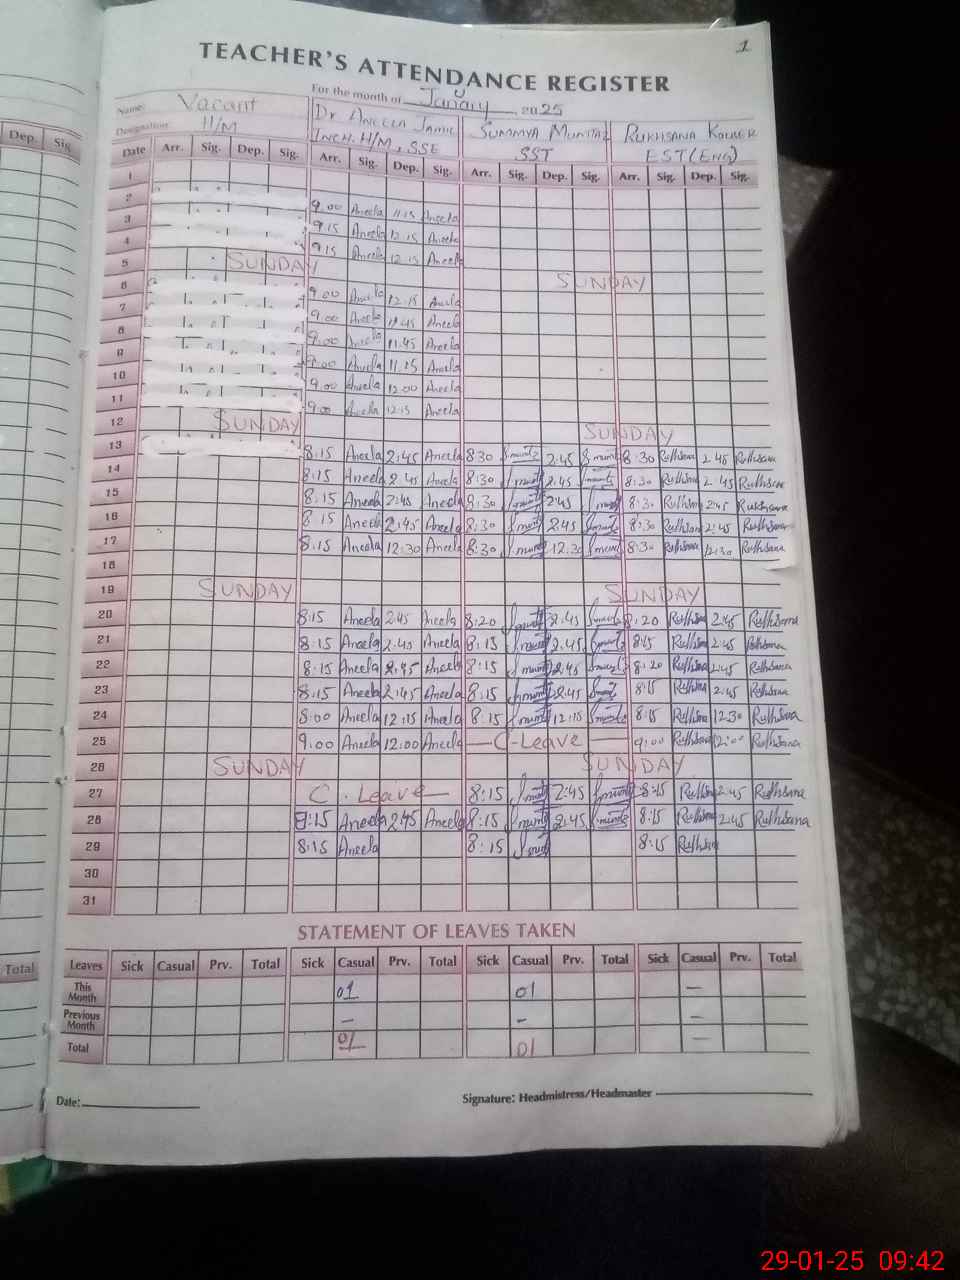 1
TEACHER'S ATTENDANCE REGISTER
For the month of Januay 2025
Name: Vacant Dr Aneela Jamil Summya Mumtaz Rukhsana Kouser
Designation: H/M Inch. H/M, SSE SST EST (Eng)
Dep. Sig.
Date Arr. Sig. Dep. Sig. Arr. Sig. Dep. Sig. Arr. Sig. Dep. Sig. Arr. Sig. Dep. Sig.
1
2 9.00 Aneela 11:15 Aneela
3 9:15 Aneela 12:15 Aneela
4 9:15 Aneela 12:15 Aneela
5 SUNDAY SUNDAY
6 9.00 Aneela 12:15 Aneela
7 9.00 Aneela Aneela
8 9:00 Aneela 11.45 Aneela
9 9:00 Aneela Aneela
10 9:00 Aneela 12:00 Aneela
11 9:00 Aneela 12:15 Aneela
12 SUNDAY SUNDAY
13 8:15 Aneela 2:45 Aneela 8:30 2:45 8:30 Rukhsana 2:45 Rukhsana
14 8:15 Aneela 2:45 Aneela 8:30 2:45 8:30 Rukhsana 2:45 Rukhsana
15 8:15 Aneela 2:45 Aneela 8:30 2:45 8:30 Rukhsana 2:45 Rukhsana
16 8:15 Aneela 2:45 Aneela 8:30 2:45 8:30 Rukhsana 2:45 Rukhsana
17 8:15 Aneela 12:30 Aneela 8:30 12:30 8:30 Rukhsana 12:30 Rukhsana
18
19 SUNDAY SUNDAY
20 8:15 Aneela 2:45 Aneela 8:20 2:45 8:20 Rukhsana 2:45 Rukhsana
21 8:15 Aneela 2:45 Aneela 8:15 2:45 8:15 Rukhsana 2:45 Rukhsana
22 8:15 Aneela 2:45 Aneela 8:15 2:45 8:20 Rukhsana 2:45 Rukhsana
23 8:15 Aneela 2:45 Aneela 8:15 2:45 8:15 Rukhsana 2:45 Rukhsana
24 8:00 Aneela 12:15 Aneela 8:15 12:15 8:15 Rukhsana 12:30 Rukhsana
25 9:00 Aneela 12:00 Aneela C-Leave 9:00 Rukhsana 12:00 Rukhsana
26 SUNDAY SUNDAY
27 C. Leave 8:15 2:45 8:15 Rukhsana 2:45 Rukhsana
28 8:15 Aneela 2:45 Aneela 8:15 2:45 8:15 Rukhsana 2:45 Rukhsana
29 8:15 Aneela 8:15 8:15 Rukhsana
30
31
STATEMENT OF LEAVES TAKEN
Total
Leaves Sick Casual Prv. Total Sick Casual Prv. Total Sick Casual Prv. Total Sick Casual Prv. Total
This Month 01 01 —
Previous Month — — —
Total 01 01 —
Date: Signature: Headmistress/Headmaster
29-01-25 09:42